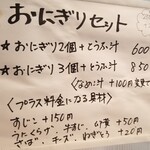 おにぎりセット
★ おにぎり2個＋とうふ汁 600
★ おにぎり3個＋とうふ汁 850
なめこ汁 +100円変更で
〈プラス料金になる具材〉
すじこ +150円
うたくらげ、牛すじ、 +50円
さば チーズ ねぎとろ +20円